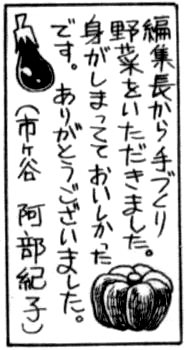 編集長から手づくり
野菜をいただきました。
身がしまってておいしかった
です。ありがとうございました。
(市ヶ谷 阿部紀子)